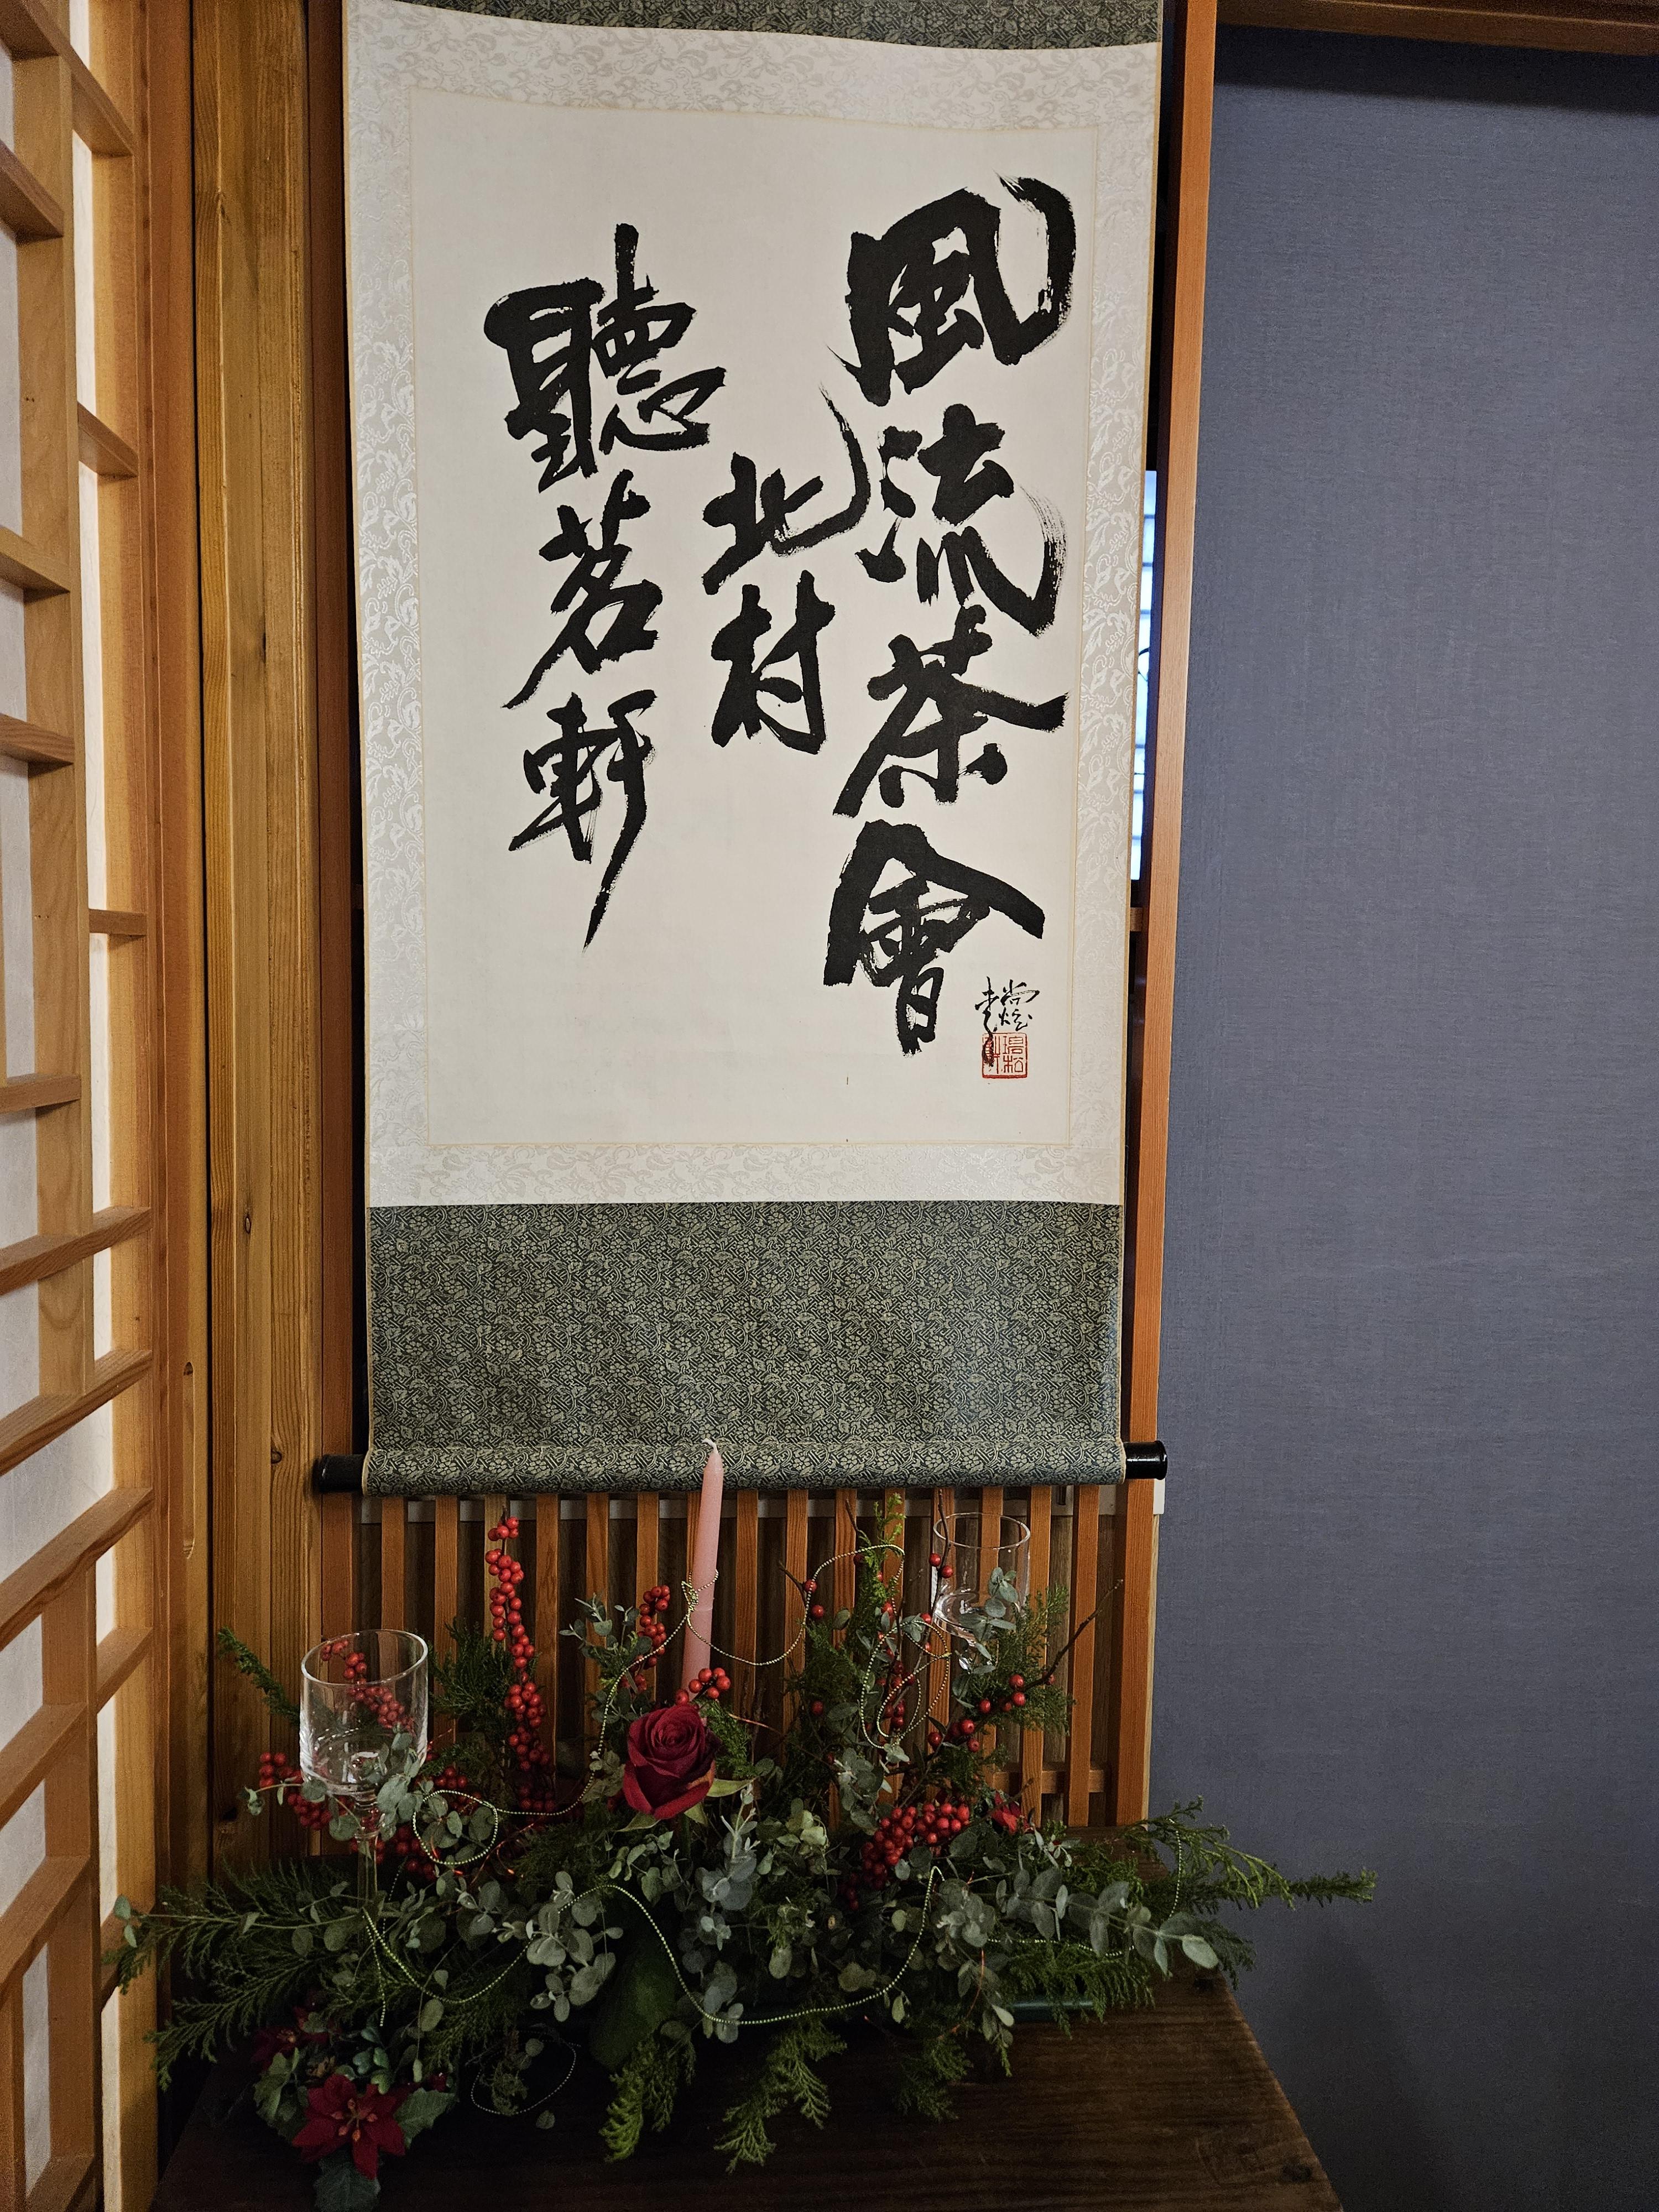 風流茶會
北村
聽茗軒